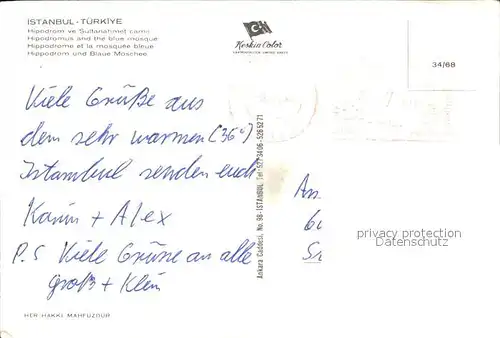 İSTANBUL - TÜRKİYE
Hipodrom ve Sultanahmet camii
Hipodromus and the blue mosque
Hippodrome et la mosquée bleue
Hippodrom und Blaue Moschee
Keskin Color
34/68
Viele Grüße aus
dem sehr warmen (36°)
Istambul senden euch
Karin + Alex
P.S Viele Grüne an alle
groß + Klein
Ankara Caddesi, No. 98 - İSTANBUL Tel: 527 34 06 - 526 52 71
privacy protection
Datenschutz
HER HAKKI MAHFUZDUR